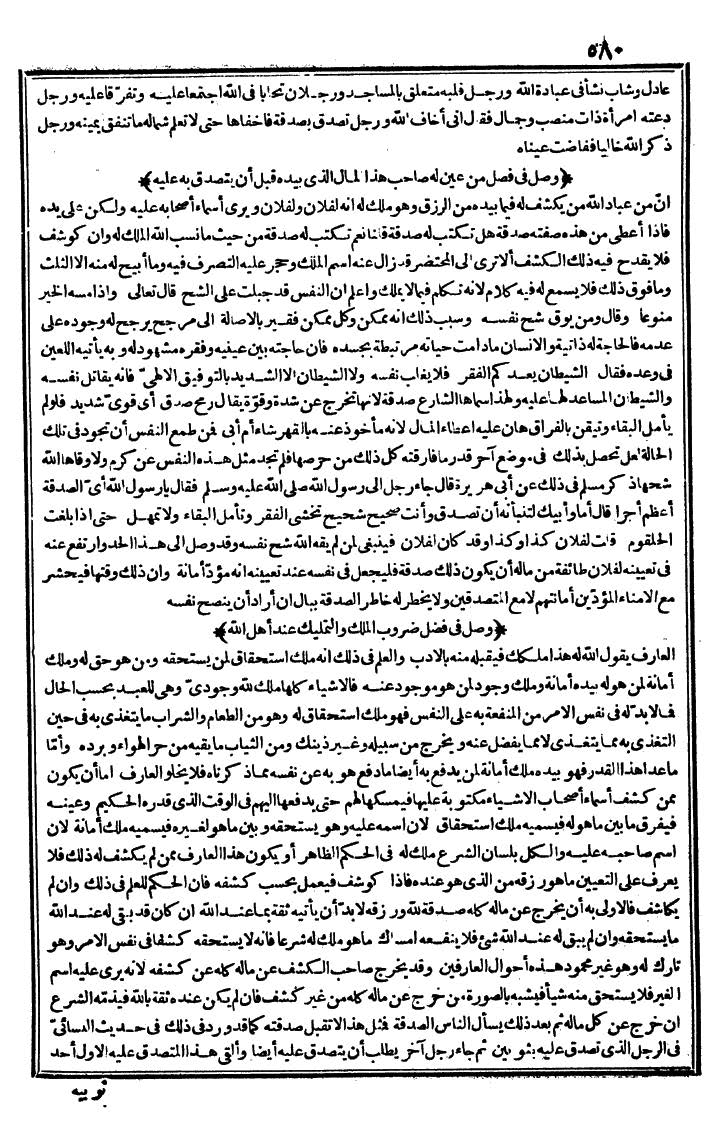 ٥٨٠
عادل وشاب نشأ فى عبادة الله ورجل قلبه متعلق بالمساجد ورجلان تحابا فى الله اجتمعا عليه وتفرقا عليه ورجل
دعته امرأة ذات منصب وجمال فقال انى أخاف الله ورجل تصدق بصدقة فاخفاها حتى لا تعلم شماله ما تنفق يمينه ورجل
ذكر الله خاليا ففاضت عيناه
﴿وصل فى فصل من عين له صاحب هذا المال الذى بيده قبل أن يتصدق به عليه﴾
انّ من عباد الله من يكشف له فيما بيده من الرزق وهو ملك له انه لفلان ولفلان ويرى أسماء أصحابه عليه ولكن على يده
فاذا أعطى من هذه صفته صدقة هل تكتب له صدقة قلنا نعم تكتب له صدقة من حيث ما نسب الله الملك له وان كوشف
فلا يقدح فيه ذلك الكشف ألا ترى الى المحتضر قد زال عنه اسم الملك وحجر عليه التصرف فيه وما أبيح له منه الا الثلث
وما فوق ذلك فلا يسمع له فيه كلام لانه تكلم فيما لا يملك واعلم ان النفس قد جبلت على الشح قال تعالى واذا مسه الخير
منوعا وقال ومن يوق شح نفسه وسبب ذلك انه ممكن وكل ممكن فقير بالاصالة الى مرجح يرجح له وجوده على
عدمه فالحاجة له ذاتية والانسان مادامت حياته مرتبطة بجسده فان حاجته بين عينيه وفقره مشهود له وبه يأتيه اللعين
فى وعده فقال الشيطان يعدكم الفقر فلا يغلب نفسه ولا الشيطان الا الشديد بالتوفيق الالهىّ فانه يقاتل نفسه
والشيطان المساعد لها عليه ولهذا سماها الشارع صدقة لانها تخرج عن شدة وقوّة يقال رمح صدق أى قوىّ شديد فلولم
يأمل البقاء وتيقن بالفراق هان عليه اعطاء المال لانه مأخوذ عنه بالقهر شاء أم أبى فمن طمع النفس أن تجود فى تلك
الحالة لعل تحصل بذلك فى موضع آخر قدر ما فارقته كل ذلك من حرصها فلم تجد مثل هذه النفس عن كرم ولا وقاها الله
شحها ذكر مسلم فى ذلك عن أبى هريرة قال جاء رجل الى رسول الله صلى الله عليه وسلم فقال يا رسول الله أىّ الصدقة
أعظم أجرا قال أما وأبيك لتنبأنه أن تصدق وأنت صحيح شحيح تخشى الفقر وتأمل البقاء ولا تمهل حتى اذا بلغت
الحلقوم قلت لفلان كذا وكذا وقد كان لفلان فينبغى لمن لم يقه الله شح نفسه وقد وصل الى هذا الحد وارتفع عنه
فى تعيينه لفلان طائفة من ماله أن يكون ذلك صدقة فليجعل فى نفسه عند تعيينه انه مؤدّ أمانة وان ذلك وقتها فيحشر
مع الامناء المؤدّين أمانتهم لا مع المتصدقين ولا يخطر له خاطر الصدقة ببال ان أراد أن ينصح نفسه
﴿وصل فى فضل ضروب الملك والتمليك عند أهل الله﴾
العارف يقول الله له هذا ملكك فيقبله منه بالادب والعلم فى ذلك انه ملك استحقاق لمن يستحقه ومن هو حق له وملك
أمانة لمن هو له بيده أمانة وملك وجود لمن هو موجود عنه فالاشياء كلها ملك لله وجودىّ وهى للعبد بحسب الحال
فما لا بدّ له فى نفس الامر من المنفعة به على النفس فهو ملك استحقاق له وهو من الطعام والشراب ما يتغذى به فى حين
التغذى به مما يتغذى لا مما يفضل عنه ويخرج من سبيله وغير ذينك ومن الثياب ما يقيه من حر الهواء وبرده وأمّا
ماعدا هذا القدر فهو بيده ملك أمانة لمن يدفع به أيضا ما دفع هو به عن نفسه مما ذكرناه فلا يخلو العارف اما أن يكون
ممن كشف أسماء أصحاب الاشياء مكتوبة عليها فيمسكها لهم حتى يدفعها اليهم فى الوقت الذى قدره الحكيم وعينه
فيفرق ما بين ما هو له فيسميه ملك استحقاق لان اسمه عليه وهو يستحقه وبين ما هو لغيره فيسميه ملك أمانة لان
اسم صاحبه عليه والكل بلسان الشرع ملك له فى الحكم الظاهر أو يكون هذا العارف ممن لم يكشف له ذلك فلا
يعرف على التعيين ما هو رزقه من الذى هو عنده فاذا كوشف فيعمل بحسب كشفه فان الحكم للعلم فى ذلك وان لم
يكاشف فالاولى به أن يخرج عن ماله كله صدقة لله ورزقه لا بدّ أن يأتيه ثقة بما عند الله ان كان قد بقى له عند الله
ما يستحقه وان لم يبق له عند الله شئ فلا ينفعه امساك ما هو ملك له شرعا فانه لا يستحقه كشفا فى نفس الامر وهو
تارك له وهو غير محمود هذه أحوال العارفين وقد يخرج صاحب الكشف عن ماله كله عن كشفه لانه يرى عليه اسم
الغير فلا يستحق منه شيأ فيشبه بالصورة من خرج عن ماله كله من غير كشف فان لم يكن عنده ثقة بالله فيذمّه الشرع
ان خرج عن كل ماله ثم بعد ذلك يسأل الناس الصدقة فمثل هذا لا تقبل صدقته كما قد ورد فى ذلك فى حديث النسائىّ
فى الرجل الذى تصدق عليه بثوبين ثم جاء رجل آخر يطلب أن يتصدق عليه أيضا وألقى هذا المتصدق عليه الاول أحد
ثوبيه